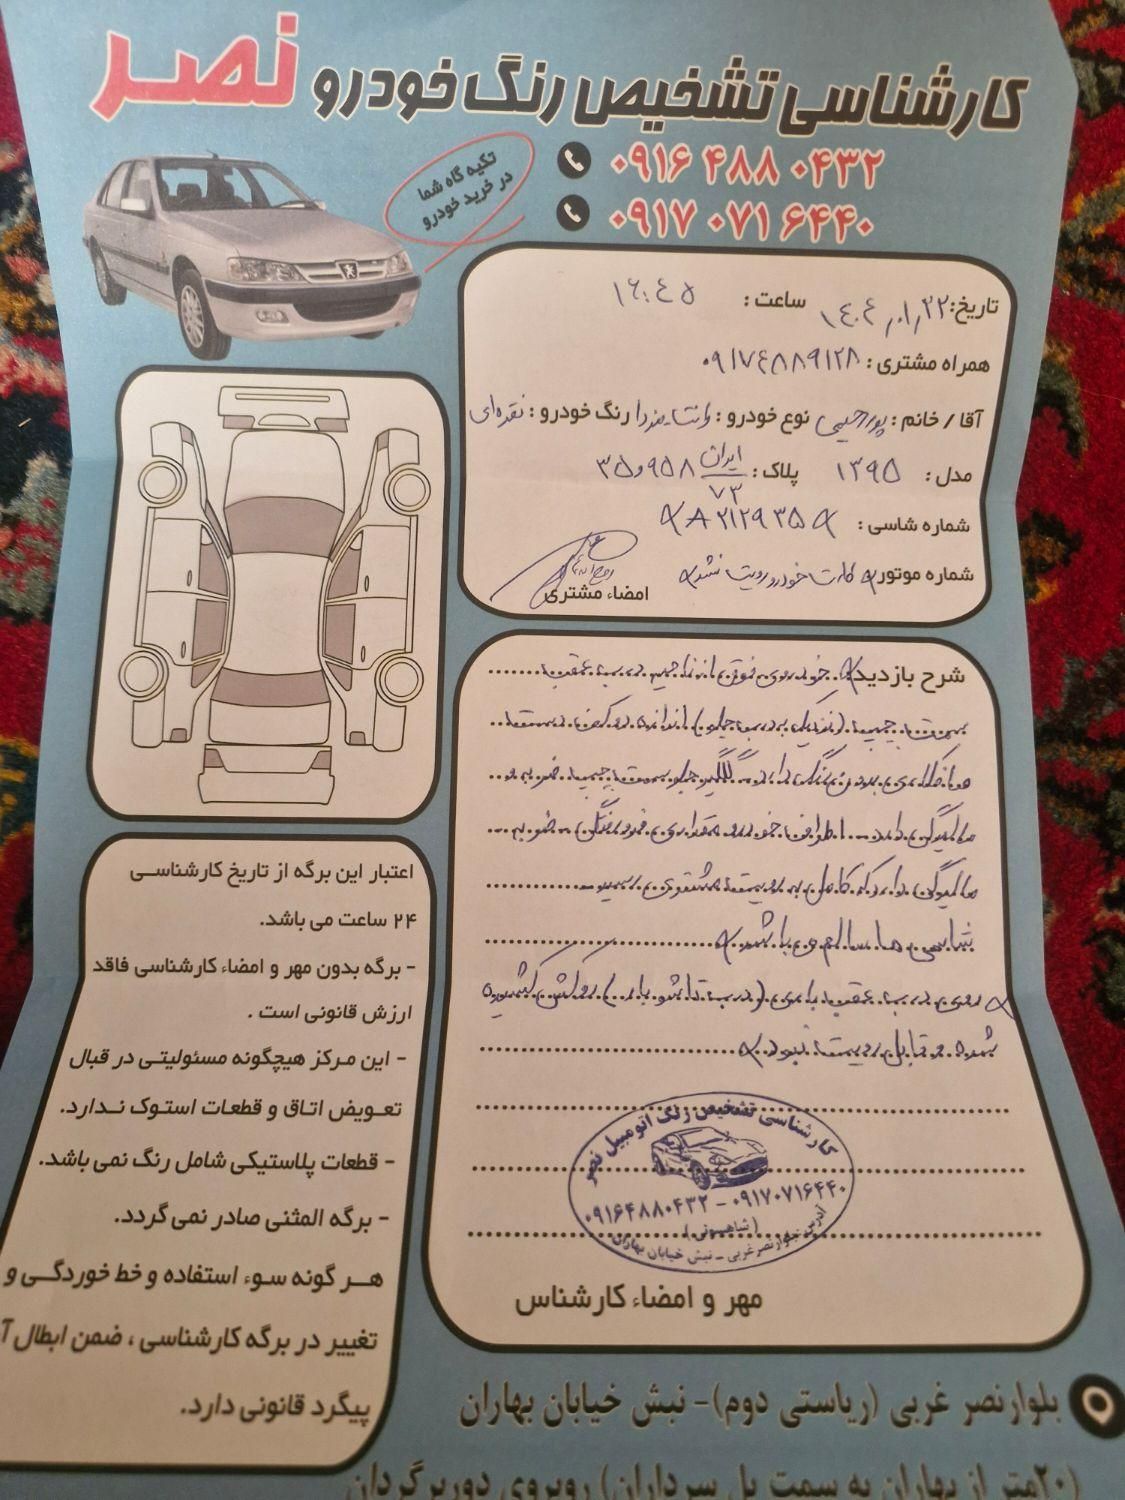 کارشناسی تشخیص رنگ خودرو نصر
۰۹۱۶ ۴۸۸ ۰۴۳۲
۰۹۱۷ ۰۷۱ ۶۴۴۰
تکیه گاه شما
در خرید خودرو
تاریخ: ۱۴۰۴/۰۱/۲۲ ساعت: ۱۶:۴۵
همراه مشتری: ۰۹۱۷۴۸۸۹۱۲۸
آقا / خانم: پوررحیمی نوع خودرو: وانت مزدا رنگ خودرو: نقره‌ای
مدل: ۱۳۹۵ پلاک: ۹۵۸و۳۵ ایران ۷۳
شماره شاسی: A۲۱۲۹۳۵
شماره موتور: کارت خودرو رویت نشد
امضاء مشتری
شرح بازدید: خودروی فوق از ناحیه درب عقب
سمت چپ (نزدیک به درب جلو) اندازه کف دست
صافکاری بدون رنگ دارد گلگیر جلو سمت چپ ضربه و
مالیدگی دارد اطراف خودرو مقداری فرورفتگی ضربه
مالیدگی دارد که کامل به رویت مشتری رسید
شاسی ها سالم می باشد
روی درب عقب باری (درب تاشو بار) روکش کشیده
شده و قابل رویت نبود
کارشناسی تشخیص رنگ اتومبیل نصر
۰۹۱۶۴۸۸۰۴۳۲ - ۰۹۱۷۰۷۱۶۴۴۰
آدرس: بلوار نصر غربی - نبش خیابان بهاران
مهر و امضاء کارشناس
اعتبار این برگه از تاریخ کارشناسی
۲۴ ساعت می باشد.
- برگه بدون مهر و امضاء کارشناسی فاقد
ارزش قانونی است .
- این مرکز هیچگونه مسئولیتی در قبال
تعویض اتاق و قطعات استوک ندارد.
- قطعات پلاستیکی شامل رنگ نمی باشد.
- برگه المثنی صادر نمی گردد.
هر گونه سوء استفاده و خط خوردگی و
تغییر در برگه کارشناسی ، ضمن ابطال آ
پیگرد قانونی دارد.
بلوار نصر غربی (ریاستی دوم)- نبش خیابان بهاران
(۲۰متر از بهاران به سمت پل سرداران) روبروی دوربرگردان